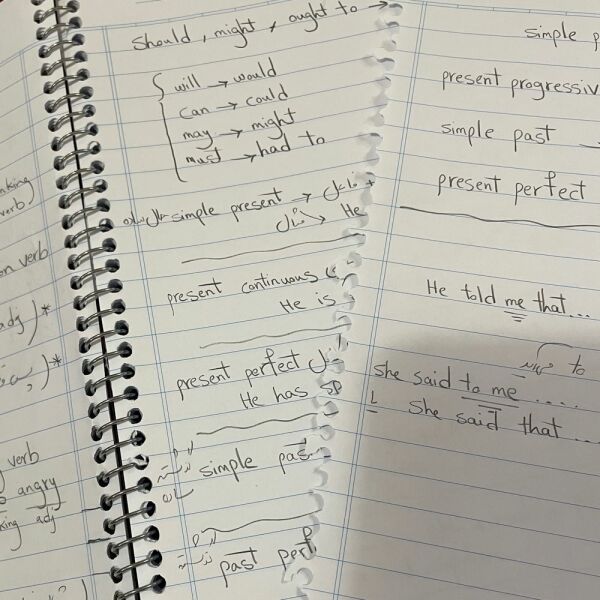 should, might, ought to →
will → would
can → could
may → might
must → had to
simple present → فاعل +
مثال: He
present continuous
He is
present perfect
He has
simple past
past perf
verb
on verb
adj)*
)*
verb
angry
adj
simple p
present progressiv
simple past
present perfect
He told me that...
to
she said to me ....
She said that ...